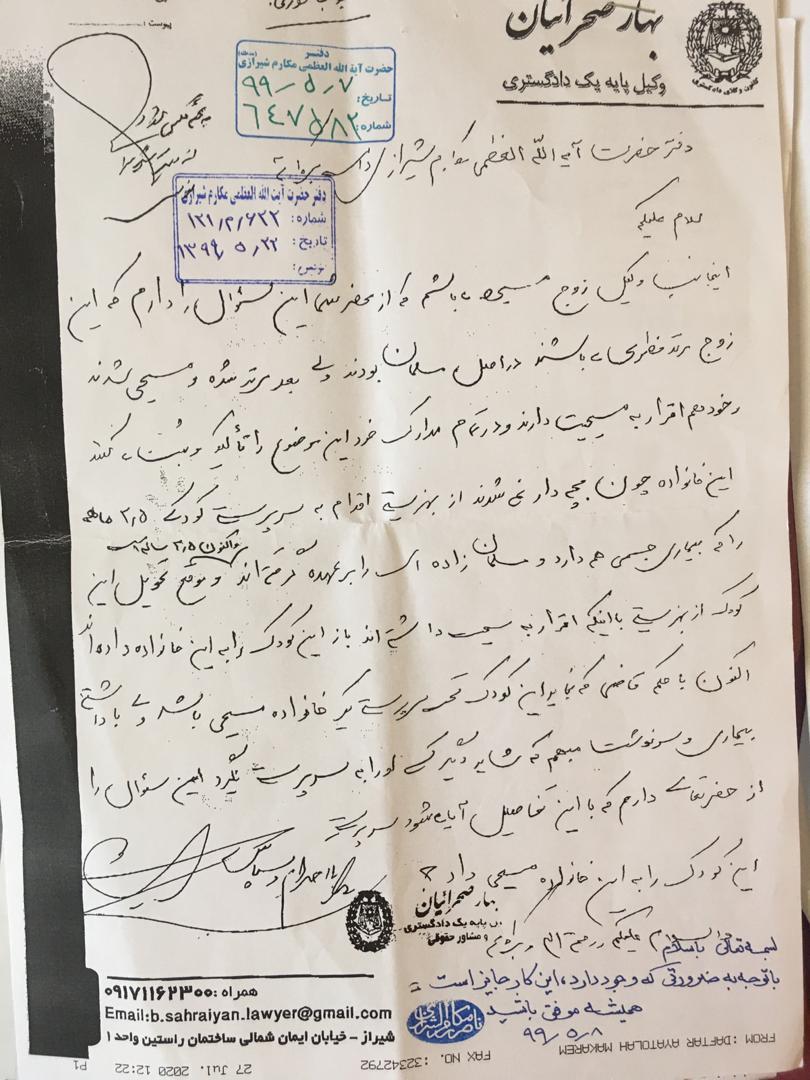 بهار صحرائیان
وکیل پایه یک دادگستری
کانون وکلای دادگستری
پیوست
دفتر
حضرت آیة الله العظمی مکارم شیرازی
تاریخ: ۹۹/۵/۷
شماره: ۶۴۷۱۵/۸۲
دفتر حضرت آیه الله العظمی مکارم شیرازی
دفتر حضرت آیت الله العظمی مکارم شیرازی
شماره: ۱۲۱/م/۶۲۲
تاریخ: ۱۳۹۹/۵/۲۲
پیوست:
سلام علیکم
اینجانب وکیل زوج مسیحی می باشم که از محضر شما این سئوال را دارم که این
زوج مرتد فطری می باشند در اصل مسلمان بودند ولی بعد مرتد شده و مسیحی شدند
و خود هم اقرار به مسیحیت دارند و در تمام مدارک خود این موضوع را تأکید و ثبت می کنند
این خانواده چون بچه دار نمی شدند از بهزیستی اقدام به سرپرستی کودکی ۳٫۵ ماهه
واکنون ۲٫۵ ساله است
را که بیماری جسمی هم دارد و مسلمان زاده ای را بر عهده گرفته اند و موقع تحویل این
کودک از بهزیستی با اینکه اقرار به مسیحیت داشته اند باز این کودک را به این خانواده داده اند
اکنون با حکم قاضی که نباید این کودک تحت سرپرستی یک خانواده مسیحی باشد ولی با داشتن
بیماری و سرنوشت مبهم که شاید دیگر کسی او را به سرپرستی نگیرد این سئوال را
از حضرتعالی دارم که با این تفاصیل آیا می شود سرپرستی
این کودک را به این خانواده مسیحی داد ؟
با احترام و سپاس
بهار صحرائیان
وکیل پایه یک دادگستری
و مشاور حقوقی
بسمه تعالی باسلام
علیکم و رحمة الله و برکاته
باتوجه به ضرورتی که وجود دارد، این کار جایز است
همیشه موفق باشید
۹۹/۵/۸
همراه: ۰۹۱۷۱۱۶۲۳۰۰
Email:b.sahraiyan.lawyer@gmail.com
شیراز - خیابان ایمان شمالی ساختمان راستین واحد ۱
FROM :DAFTAR AYATOLAH MAKAREM
FAX NO. :32342792
27 Jul. 2020 12:22
P1